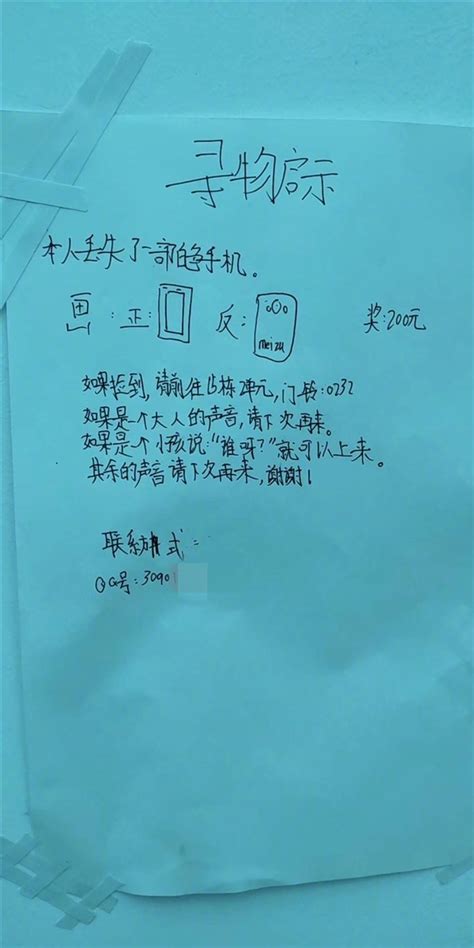 寻物启示
本人丢失了一部白色手机。
画: 正: 反: meizu 奖:200元
如果捡到, 请前往6栋2单元, 门铃:0232
如果是一个大人的声音, 请下次再来。
如果是个小孩说:"谁呀?"就可以上来。
其余的声音请下次再来, 谢谢!
联系方式:
QQ号:3090